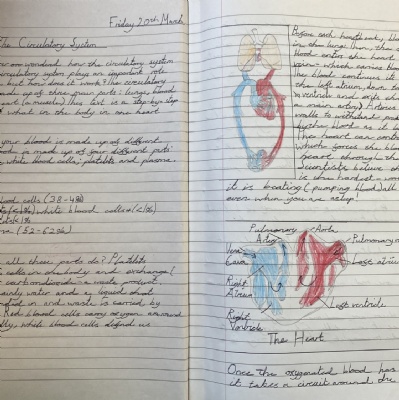 Friday 20th March
The Circulatory System
ever wondered how the circulatory system
circulatory system plays an important role
but how does it work? The circulatory
made up of three main parts: lungs, blood
heart (a muscle). This text is a step-by-step
of what in the body in one heart
your blood is made up of different
blood is made up of four different parts:
white blood cells; platelets and plasma.
blood cells (38-48%)
white blood cells (<1%)
(52-62%)
all these parts do? Platelets
cells in the body and exchange
carbon dioxide - a waste product.
mainly water and a liquid that
in and waste is carried by
Red blood cells carry oxygen around
while blood cells defend us
Before each heartbeat, blood
in the lungs. Then, the
blood enters the heart
vein - which carries
the blood continues it
the left atrium, down to
ventricle and exits
a main artery). Arteries
walls to withstand
blood as it
The heart
which forces the blood
heart through
Scientists believe
is the hardest
it is beating (pumping blood) all
even when you are asleep.
Pulmonary
Artery
Aorta
Pulmonary
Vena
Cava
Left atrium
Right
Atrium
Left ventricle
Right
Ventricle
The Heart
Once the oxygenated blood has
it takes a circuit around the